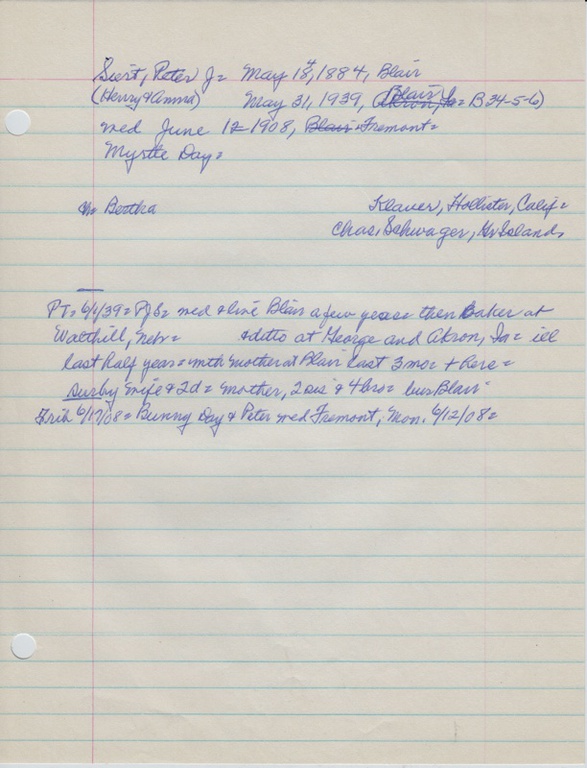 Siert, Peter J= May 18, 1884, Blair
(Henry & Anna) May 31, 1939, Akron, Ia= B 34-5-6)
Blair
med June 12 1908, Blair Fremont=
Myrtle Day=
Bertha Klauer, Hollister, Calif=
Chas. Schwager, Gr Island,
PT= 6/1/39= PJS= med & live Blair a few years= then baker at
Walthill, Neb= & ditto at George and Akron, Ia= ill
last half year= with mother at Blair last 3 mos +
Surby wife & 2d= mother, 2 sis & 4 bro= bur Blair
Trib 6/17/08= Bunny Day & Peter med Fremont, Mon. 6/12/08=